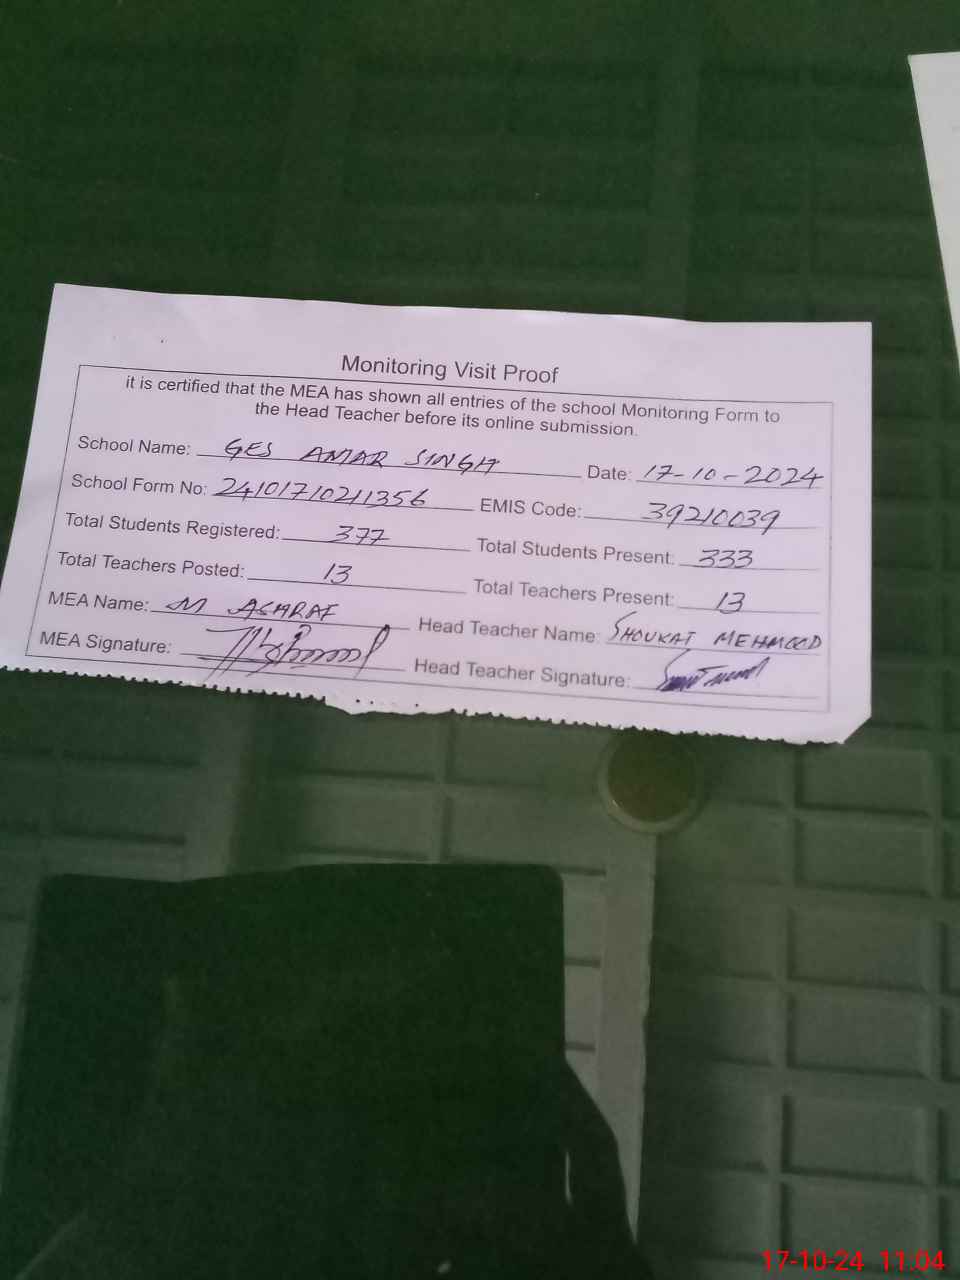 Monitoring Visit Proof
it is certified that the MEA has shown all entries of the school Monitoring Form to
the Head Teacher before its online submission.
School Name: GES AMAR SINGH Date: 17-10-2024
School Form No: 24101710211356 EMIS Code: 39210039
Total Students Registered: 377 Total Students Present: 333
Total Teachers Posted: 13 Total Teachers Present: 13
MEA Name: M ASHRAF Head Teacher Name: SHOUKAT MEHMOOD
MEA Signature: Head Teacher Signature:
17-10-24 11:04